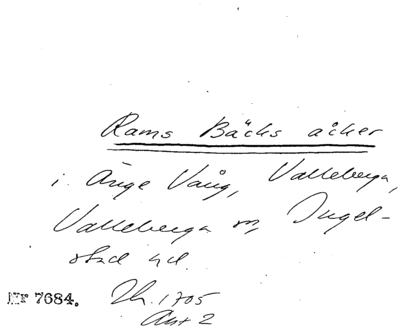 Rams Bäcks åker
i Änge Vång, Valleberga,
Valleberga sn, Ingel-
stad hd.
Nr 7684. Lh. 1705
Akt 2